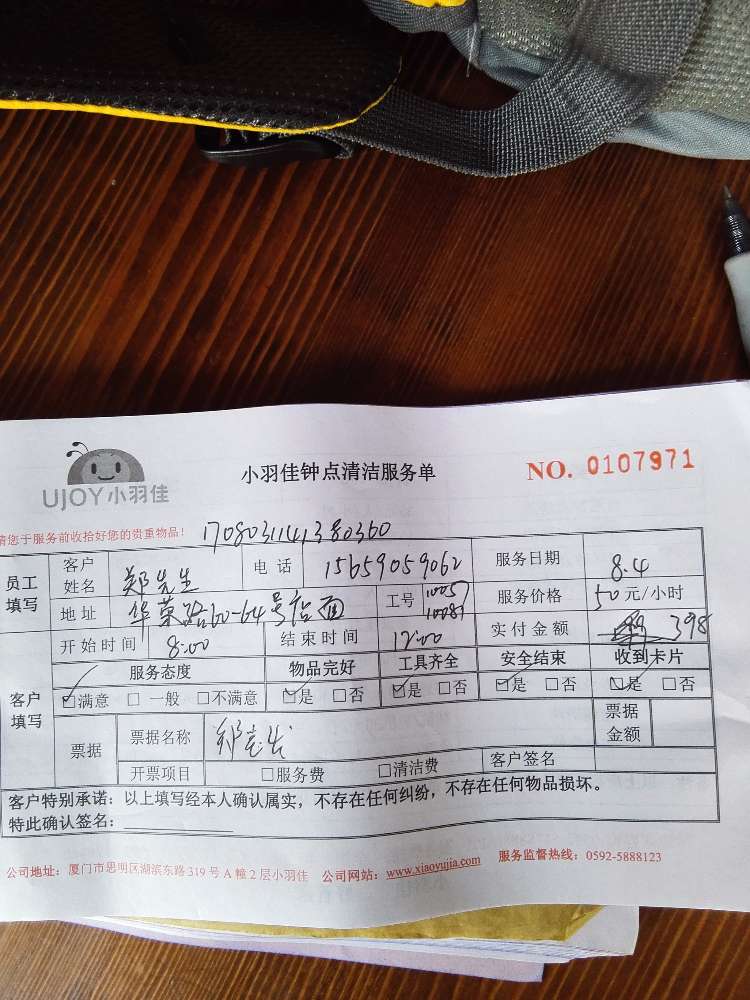 UJOY小羽佳
小羽佳钟点清洁服务单
NO. 0107971
请您于服务前收拾好您的贵重物品!
1708031141380360
员工填写 客户姓名 郑先生 电话 15659059062 服务日期 8.4
地址 华荣路60-64号店面 工号 10057 10081 服务价格 50元/小时
客户填写 开始时间 8:00 结束时间 12:00 实付金额 398
服务态度 物品完好 工具齐全 安全结束 收到卡片
☑满意 □一般 □不满意 ☑是 □否 ☑是 □否 ☑是 □否 ☑是 □否
票据 票据名称 票据金额
开票项目 □服务费 □清洁费 客户签名
客户特别承诺:以上填写经本人确认属实,不存在任何纠纷,不存在任何物品损坏。
特此确认签名:
公司地址:厦门市思明区湖滨东路319号A幢2层小羽佳 公司网站:www.xiaoyujia.com 服务监督热线:0592-5888123